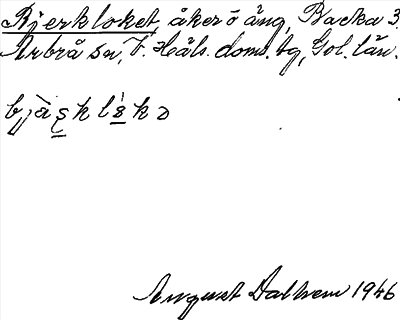 Bjerkloket, åker o äng, Backa 3.
Arbrå sn, V. Häls. doms. tg, Gvl. län.
bjàrklókə
August Dalhem 1946